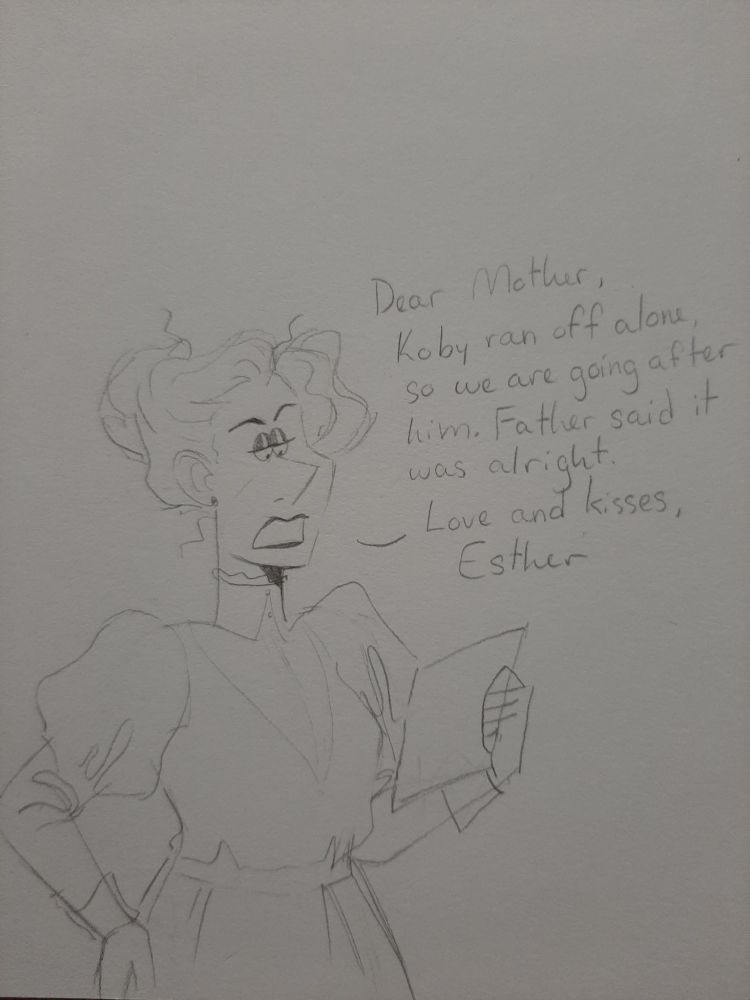 Dear Mother,
Koby ran off alone,
so we are going after
him. Father said it
was alright.
Love and kisses,
Esther